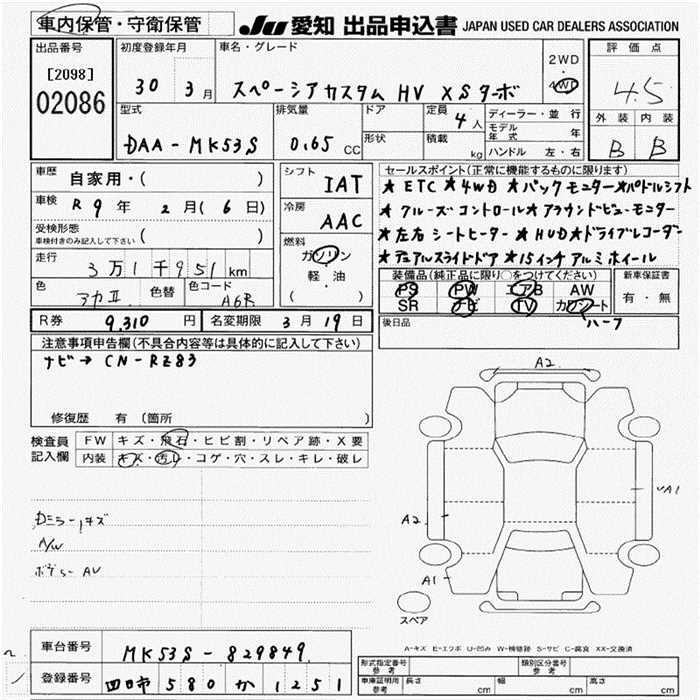 車内保管・守衛保管
JU 愛知 出品申込書 JAPAN USED CAR DEALERS ASSOCIATION
出品番号
[2098]
02086
初度登録年月
30 3月
車名・グレード
スペーシアカスタム HV XSターボ
2WD
・
4WD
評価点
4.5
外装 内装
B B
型式
DAA-MK53S
排気量
0.65 CC
ドア
形状
定員 4人
積載 kg
ディーラー・並行
モデル年式 年
ハンドル 左・右
車歴 自家用・( )
車検 R9年 2月(6日)
受検形態
車検付きのみ記入して下さい ( )
走行 3万1千951km
色 アカII 色替
色コード A6R
シフト IAT
冷房 AAC
燃料
ガソリン
軽・油
( )
セールスポイント(正常に機能するものに限り)
★ETC ★4WD ★バックモニター★パドルシフト
★クルーズコントロール★アラウンドビューモニター
★左右シートヒーター ★HUD★ドライブレコーダー
★デュアルスライドドア ★15インチアルミホイール
装備品(純正品に限り○をつけてください)
PS PW エアB AW
SR ナビ TV カワシート
ハーフ
新車保証書
有・無
後日品
R券 9,310円 名変期限 3月19日
注意事項申告欄(不具合内容等は具体的に記入して下さい)
ナビ→ CN-RZ83
修復歴 有(箇所
検査員記入欄
FW キズ・飛石・ヒビ割・リペア跡・X要
内装 キズ・汚レ・コゲ・穴・スレ・キレ・破レ
Dミラーキズ
A/W
ボデー AU
A2
A2
A1
A1
スペア
A-キズ E-エクボ U-凹み W-補修跡 S-サビ C-腐食 XX-交換済
車台番号 MK53S-829849
登録番号 四日市 580 か 1251
形式指定番号 参考
類別区分番号 参考
車庫証明用 参考 長さ cm 幅 cm 高さ cm